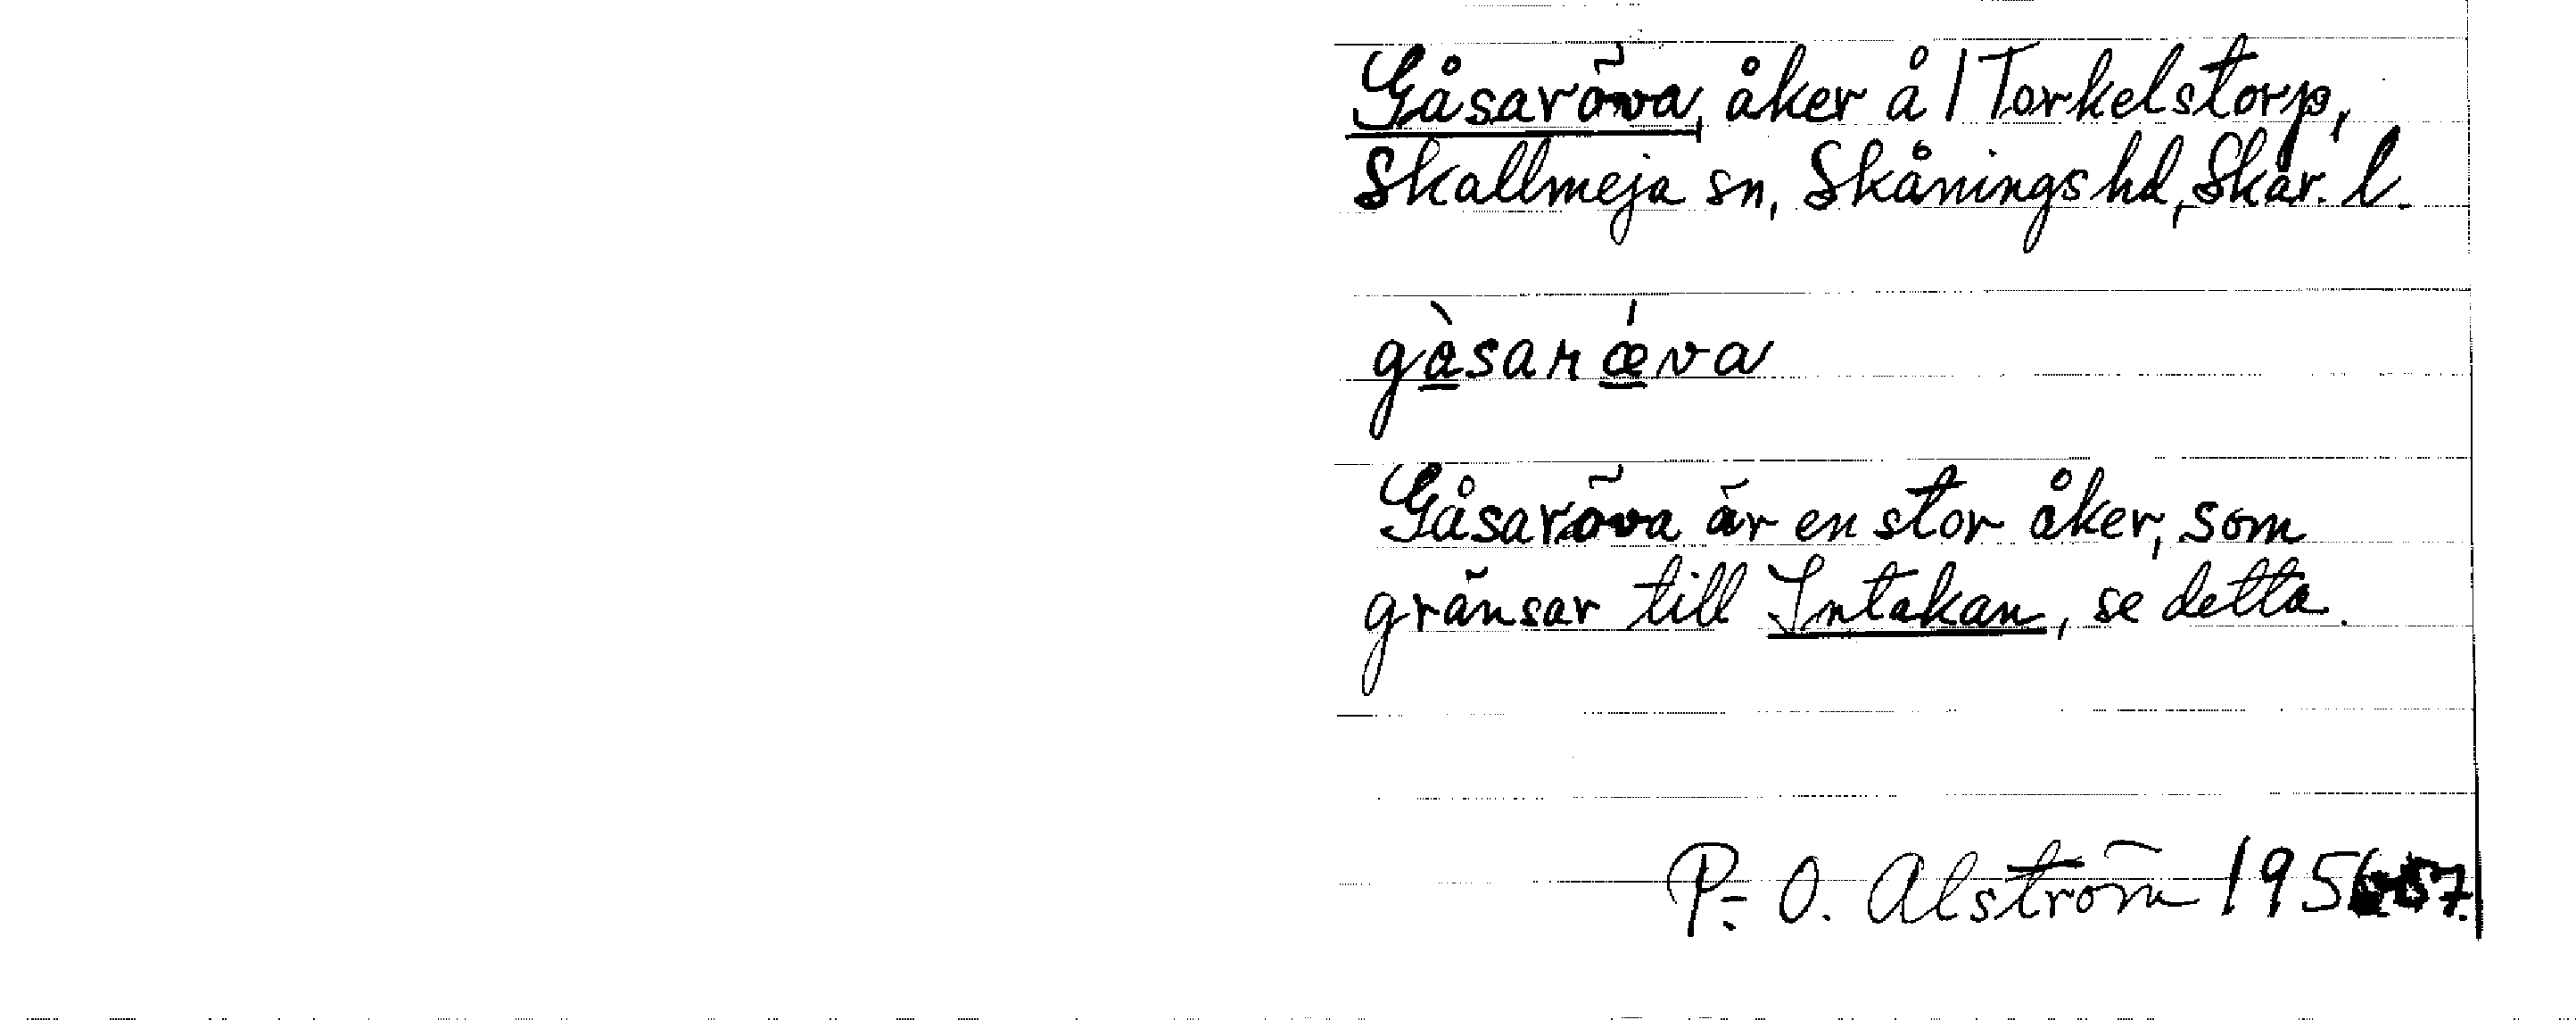 Gåsaröva, åker å 1 Torkelstorp,
Skallmeja sn, Skånings hd, Skar. l.
gàsarǽva
Gåsaröva är en stor åker, som
gränsar till Intakan, se detta.
P.-O. Alström 1956-57.